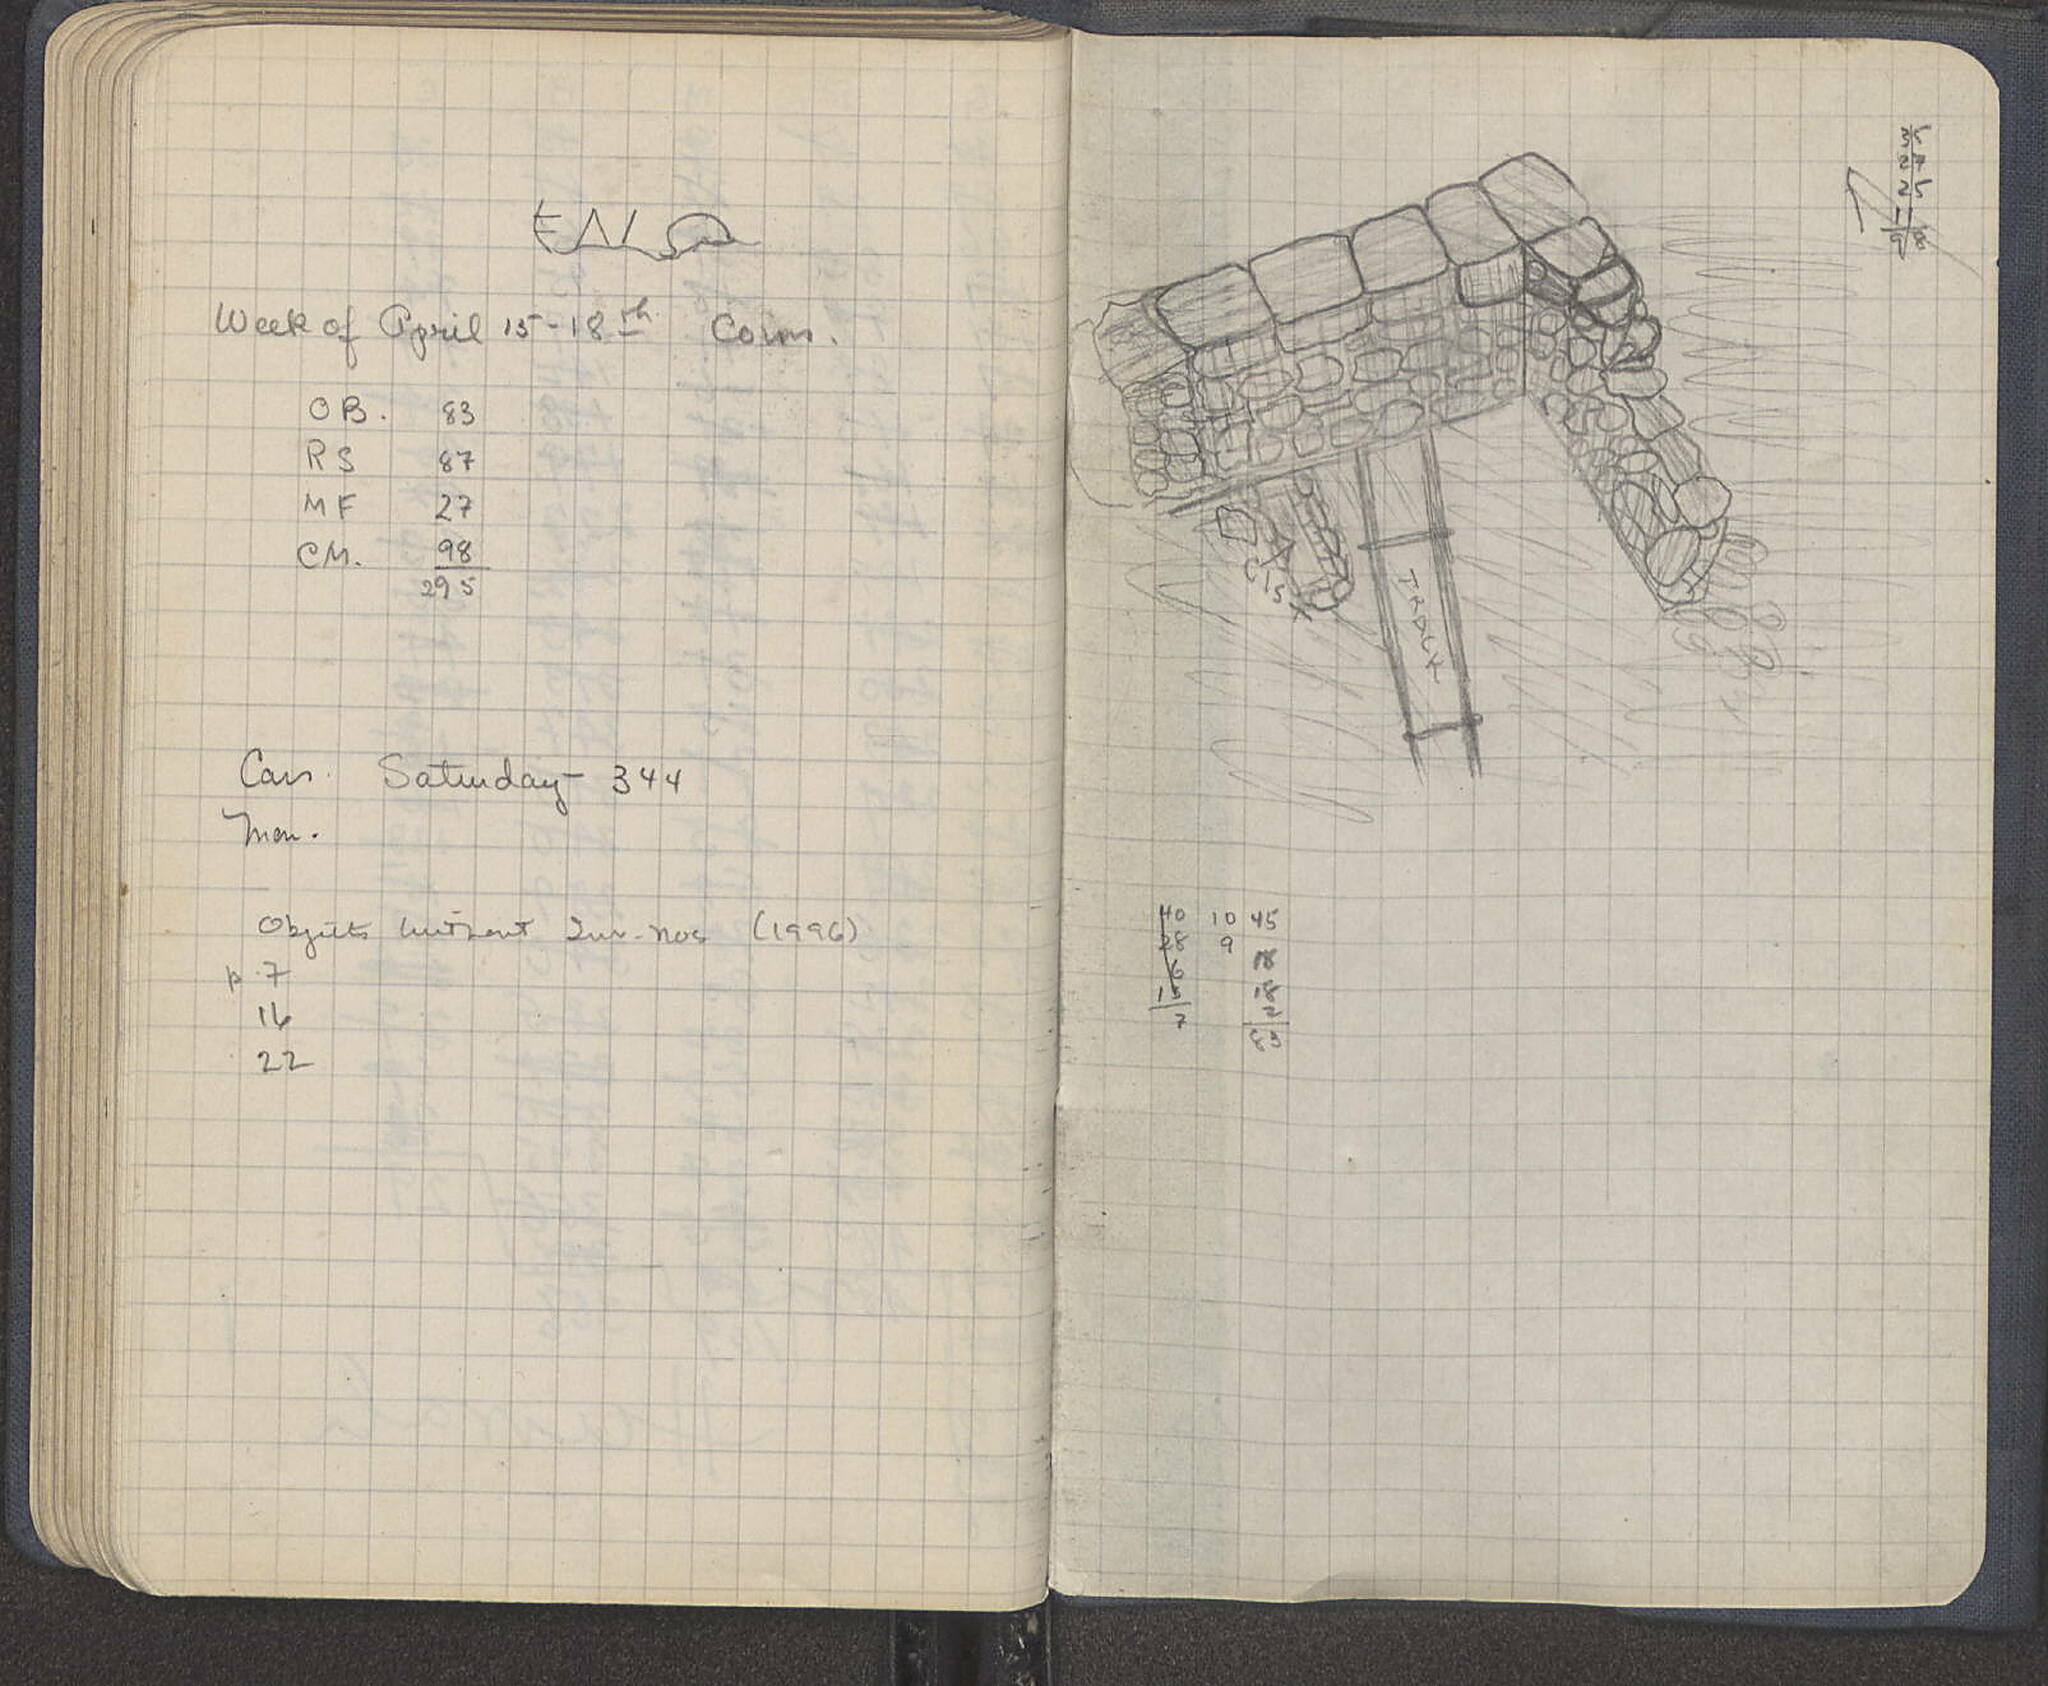 Week of April 15-18th Coins.
OB. 83
RS 87
MF 27
CM. 98
295
Cars. Saturday - 344
Mon.
Objects without Inv. nos (1996)
p. 7
16
22
CIST
TRACK
40 10 45
28 9 18
6
15 18
2
7 83